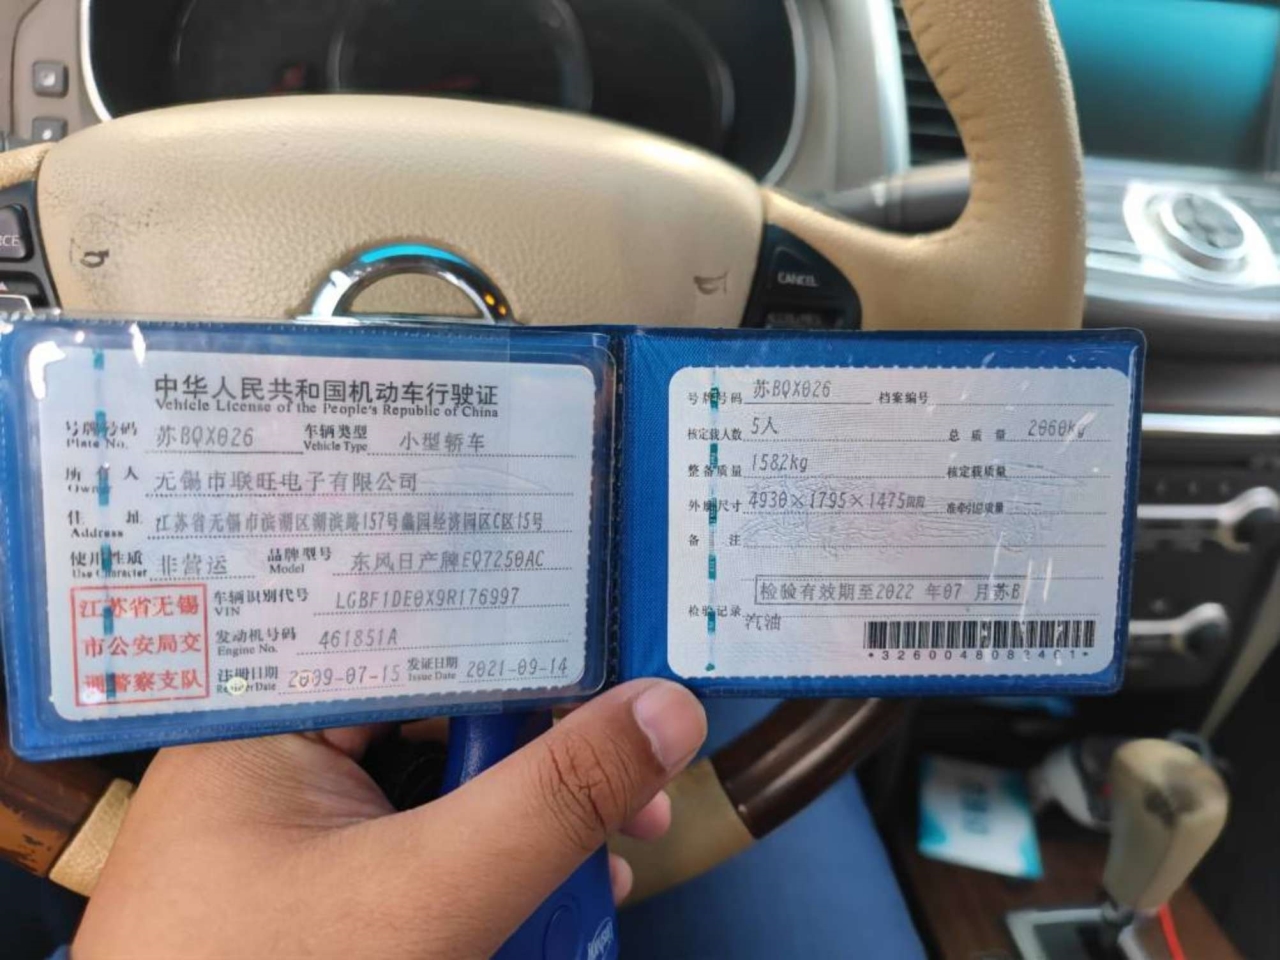 中华人民共和国机动车行驶证
Vehicle License of the People's Republic of China
号牌号码 苏BQX026 车辆类型 小型轿车
Plate No. Vehicle Type
所有人 无锡市联旺电子有限公司
Owner
住址 江苏省无锡市滨湖区湖滨路157号蠡园经济园区C区15号
Address
使用性质 非营运 品牌型号 东风日产牌EQ7250AC
Use Character Model
江苏省无锡
市公安局交
通警察支队
车辆识别代号 LGBF1DE0X9R176997
VIN
发动机号码 461851A
Engine No.
注册日期 2009-07-15 发证日期 2021-09-14
Register Date Issue Date
号牌号码 苏BQX026 档案编号
核定载人数 5人 总质量 2060kg
整备质量 1582kg 核定载质量
外廓尺寸 4930×1795×1475mm 准牵引总质量
备注
检验有效期至2022年07月苏B
检验记录
汽油
CANCEL